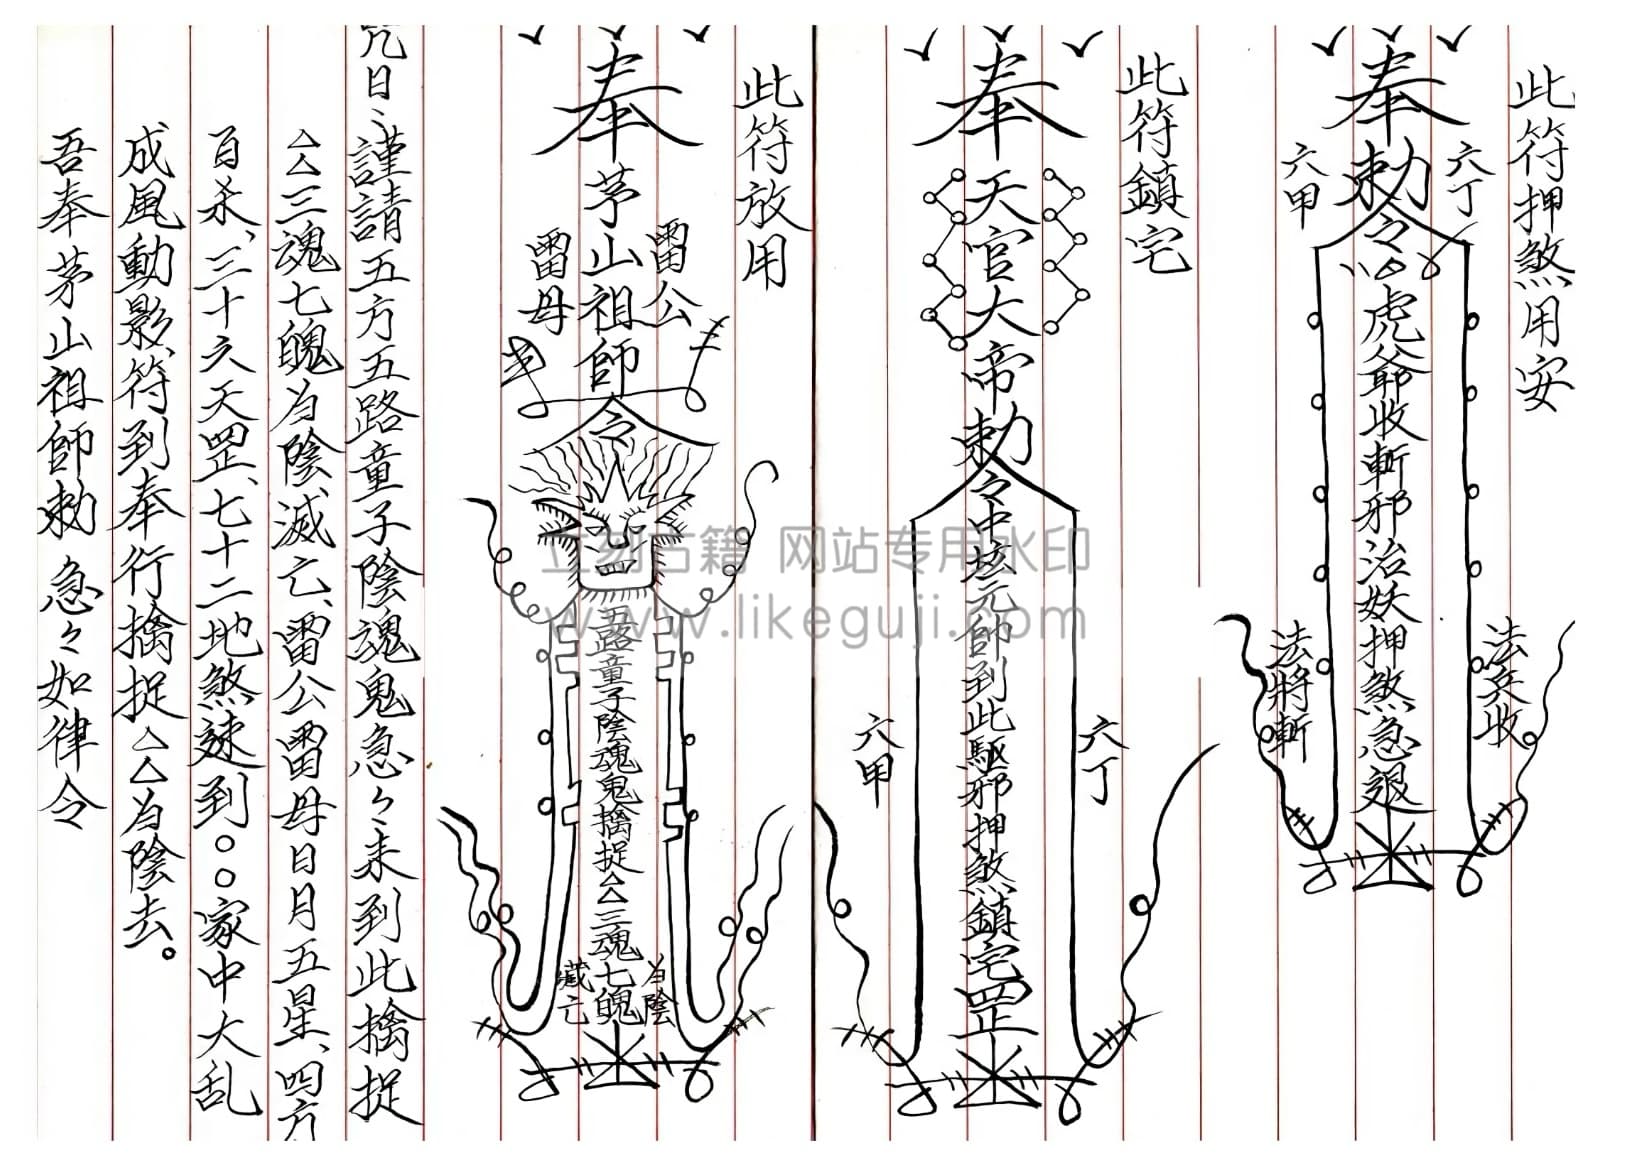 此符押煞用安
奉勅令虎爺收斬邪治妖押煞急退
六丁
六甲
法兵收
法將斬
此符鎮宅
奉天官大帝勅令中坛元帥到此驅邪押煞鎮宅罡
六丁
六甲
此符放用
奉茅山祖師令
雷公
雷母
五路童子陰魂鬼擒捉△△三魂七魄
为陰
滅亡
咒曰：謹請五方五路童子陰魂鬼急々来到此擒捉
△△三魂七魄为陰滅亡、雷公雷母日月五星、四方
百杀、三十六天罡、七十二地煞速到。○家中大乱
成風動影、符到奉行擒捉△△为陰去。
吾奉茅山祖師勅 急々如律令
立刻古籍 网站专用水印
www.likeguji.com